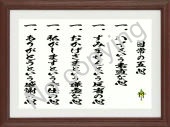 日常の五心
一、はいという素直な心
一、すみませんという反省の心
一、おかげさまという謙虚な心
一、私がしますという奉仕の心
一、ありがとうという感謝の心